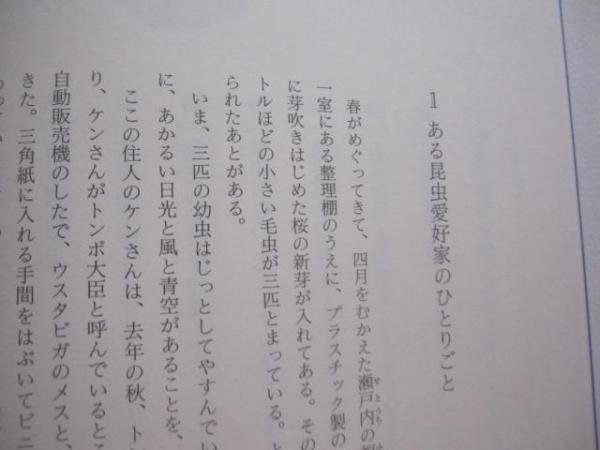 1 ある昆虫愛好家のひとりごと
春がめぐってきて、四月をむかえた瀬戸内の
一室にある整理棚のうえに、プラスチック製の
に芽吹きはじめた桜の新芽が入れてある。その
トルほどの小さい毛虫が三匹とまっている。と
られたあとがある。
いま、三匹の幼虫はじっとしてやすんでい
に、あかるい日光と風と青空があることを、
ここの住人のケンさんは、去年の秋、ト
り、ケンさんがトンボ大臣と呼んでいるとこ
自動販売機のしたで、ウスタビガのメスと、
きた。三角紙に入れる手間をはぶいてビニ